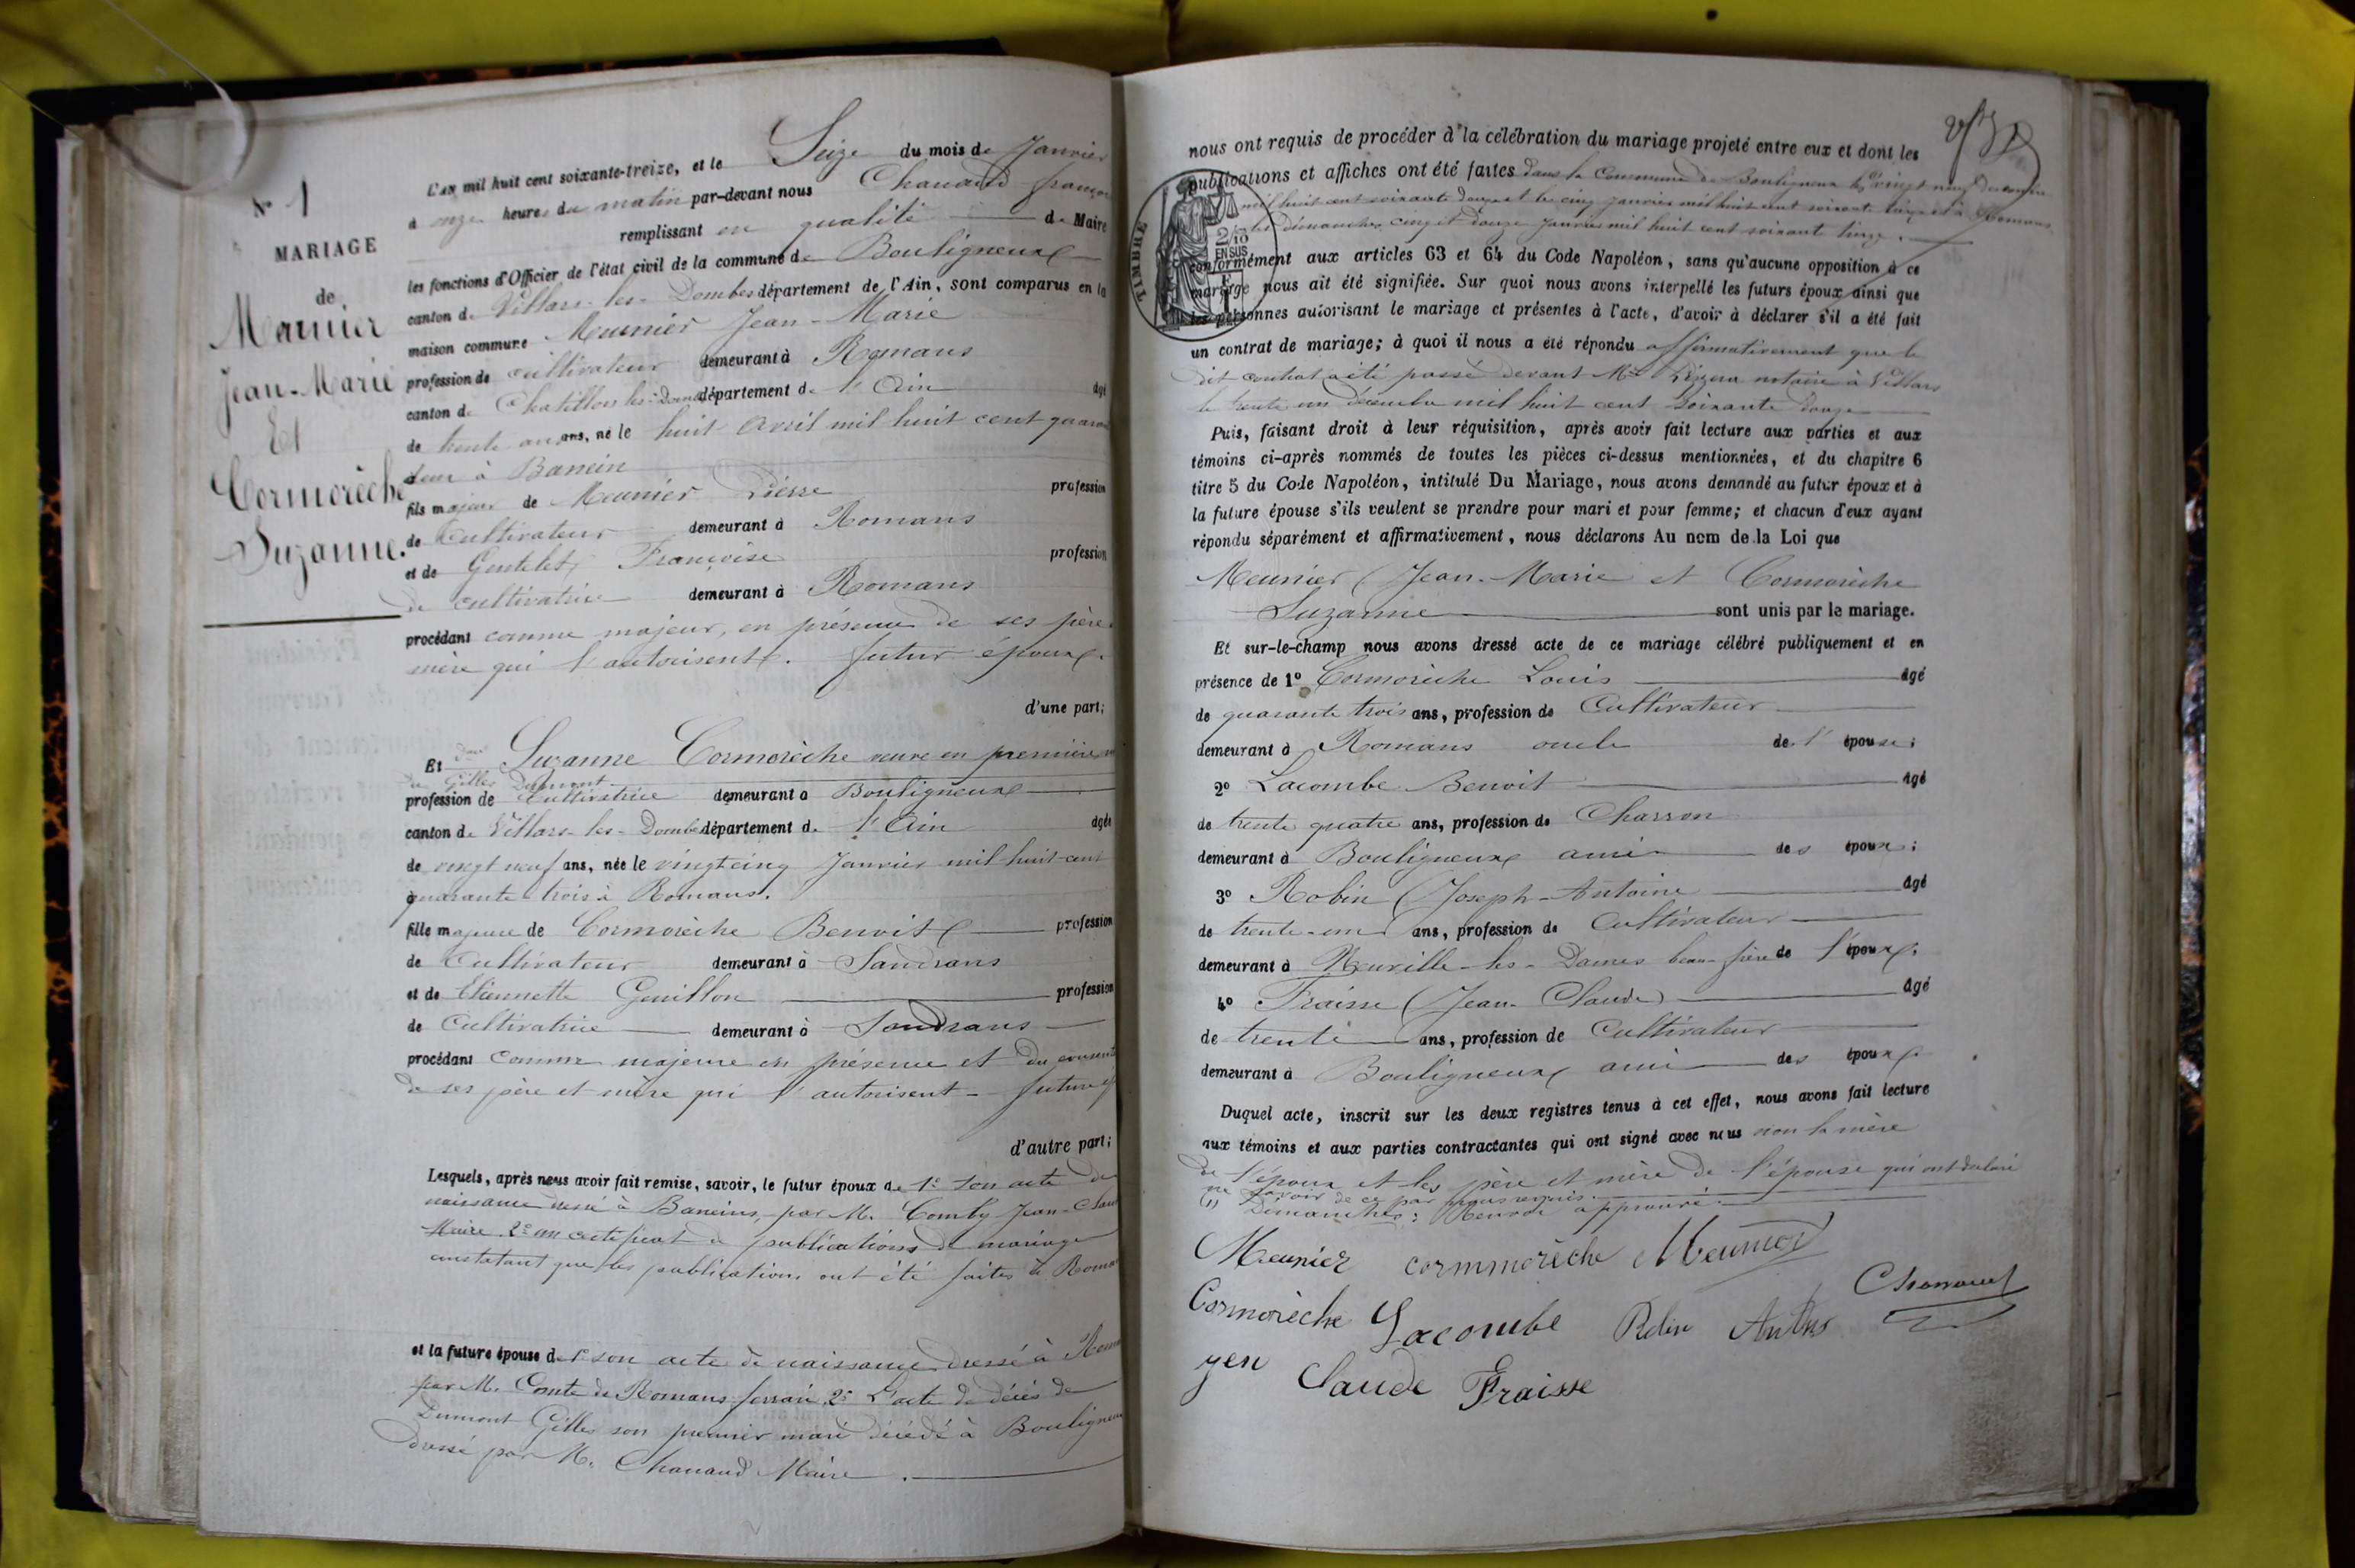 N° 1
MARIAGE
de
Meunier
Jean-Marie
Et
Cormorèche
Suzanne.
L'an mil huit cent soixante-treize, et le Seize du mois de Janvier
à onze heures du matin par-devant nous Chanaud françois
remplissant en qualité de Maire
les fonctions d'Officier de l'état civil de la commune de Bouligneux
canton de Villars-les-Dombes département de l'Ain, sont comparus en la
maison commune Meunier Jean-Marie
profession de cultivateur demeurant à Romans
canton de Chatillon les-Dombes département de l'Ain âgé
de trente ans ans, né le huit Avril mil huit cent quarante
deux à Baneins
fils majeur de Meunier Pierre profession
de Cultivateur demeurant à Romans
et de Gentelet Françoise profession
de cultivatrice demeurant à Romans
procédant comme majeur, en présence de ses père
mère qui l'autorisent. futur époux.
d'une part;
Et Suzanne Cormorèche veuve en première
de Gilles Dumont
profession de Cultivatrice demeurant à Bouligneux
canton de Villars-les-Dombes département de l'Ain âgée
de vingt neuf ans, née le vingt cinq Janvier mil huit cent
quarante trois à Romans.
fille majeure de Cormorèche Benoit profession
de Cultivateur demeurant à Sandrans
et de Etiennette Genillon profession
de Cultivatrice demeurant à Sandrans
procédant comme majeure en présence et du
de ses père et mère qui l'autorisent - future
d'autre part;
Lesquels, après nous avoir fait remise, savoir, le futur époux de 1° son acte de
naissance dressé à Baneins, par M. Comby Jean-
Maire. 2° un certificat de publications de mariage
constatant que les publications ont été faites à
et la future épouse de 1° son acte de naissance dressé à
par M. Comte de Romans ferrari, 2° L'acte de décès de
Dumont Gilles son premier mari décédé à Bouligneux
dressé par M. Chanaud Maire.
nous ont requis de procéder à la célébration du mariage projeté entre eux et dont les
publications et affiches ont été faites dans la Commune de Bouligneux les vingt neuf décembre
mil huit cent soixante douze et le cinq janvier mil huit cent soixante treize et à Romans
les dimanches cinq et douze Janvier mil huit cent soixante treize.
TIMBRE
2/10
EN SUS
conformément aux articles 63 et 64 du Code Napoléon, sans qu'aucune opposition à ce
mariage nous ait été signifiée. Sur quoi nous avons interpellé les futurs époux ainsi que
les personnes autorisant le mariage et présentes à l'acte, d'avoir à déclarer s'il a été fait
un contrat de mariage; à quoi il nous a été répondu affirmativement que le
dit contrat a été passé devant Me notaire à Villars
le trente un décembre mil huit cent soixante douze
Puis, faisant droit à leur réquisition, après avoir fait lecture aux parties et aux
témoins ci-après nommés de toutes les pièces ci-dessus mentionnées, et du chapitre 6
titre 5 du Code Napoléon, intitulé Du Mariage, nous avons demandé au futur époux et à
la future épouse s'ils veulent se prendre pour mari et pour femme; et chacun d'eux ayant
répondu séparément et affirmativement, nous déclarons Au nom de la Loi que
Meunier Jean-Marie et Cormorèche
Suzanne sont unis par le mariage.
Et sur-le-champ nous avons dressé acte de ce mariage célébré publiquement et en
présence de 1° Cormorèche Louis âgé
de quarante trois ans, profession de Cultivateur
demeurant à Romans oncle de l'épouse;
2° Lacombe Benoit âgé
de trente quatre ans, profession de Charron
demeurant à Bouligneux ami des époux;
3° Robin Joseph-Antoine âgé
de trente-un ans, profession de Cultivateur
demeurant à Neuville-les-Dames beau-frère de l'époux;
4° Fraisse (Jean-Claude) âgé
de trente ans, profession de Cultivateur
demeurant à Bouligneux ami des époux.
Duquel acte, inscrit sur les deux registres tenus à cet effet, nous avons fait lecture
aux témoins et aux parties contractantes qui ont signé avec nous non la mère
de l'époux et les père et mère de l'épouse qui ont déclaré
ne savoir de ce par nous requis.
(1) Dimanches: Renvoi approuvé.
Meunier cormmorèche Meunier
Chanaud
Cormorèche Lacombe Robin
yen Claude Fraisse